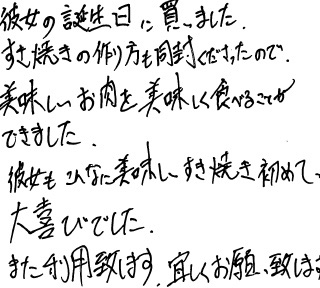 彼女の誕生日に買いました.
すき焼きの作り方も同封くださったので.
美味しいお肉を美味しく食べることが
できました.
彼女もこんなに美味しいすき焼き初めて、
大喜びでした.
また利用致します. 宜しくお願い致します